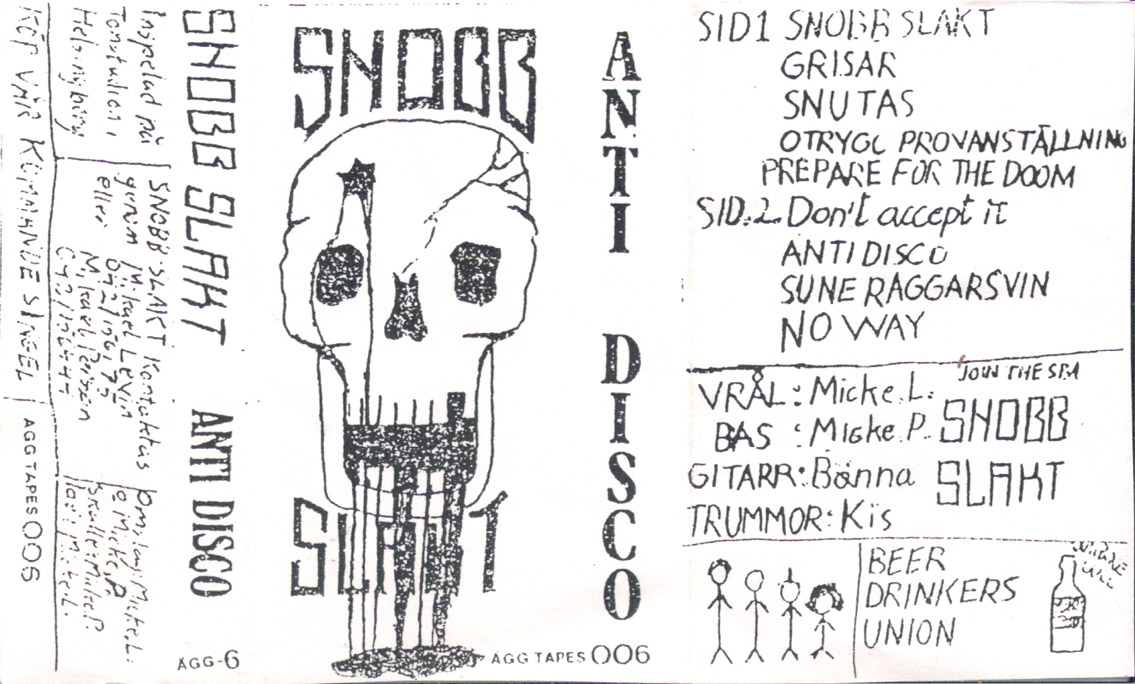 KÖP VÅR KOMMANDE SINGEL
AGG TAPES 006
Inspelad på
Tonstudion i
Helsingborg
SNOBB SLAKT Kontaktas
genom Mikael Levin
eller Mikael Persson
Omslag: Micke L.
o Micke P.
Skalle: Micke P.
SNOBB SLAKT
ANTI DISCO
AGG-6
SNOBB
SLAKT
ANTI DISCO
AGG TAPES 006
SID 1 SNOBB SLAKT
GRISAR
SNUTAS
OTRYGG PROVANSTÄLLNING
PREPARE FOR THE DOOM
SID.2. Don't accept it
ANTI DISCO
SUNE RAGGARSVIN
NO WAY
JOIN THE
VRÅL: Micke.L.
BAS: Micke.P.
GITARR: Bänna
TRUMMOR: Kis
SNOBB
SLAKT
BEER
DRINKERS
UNION